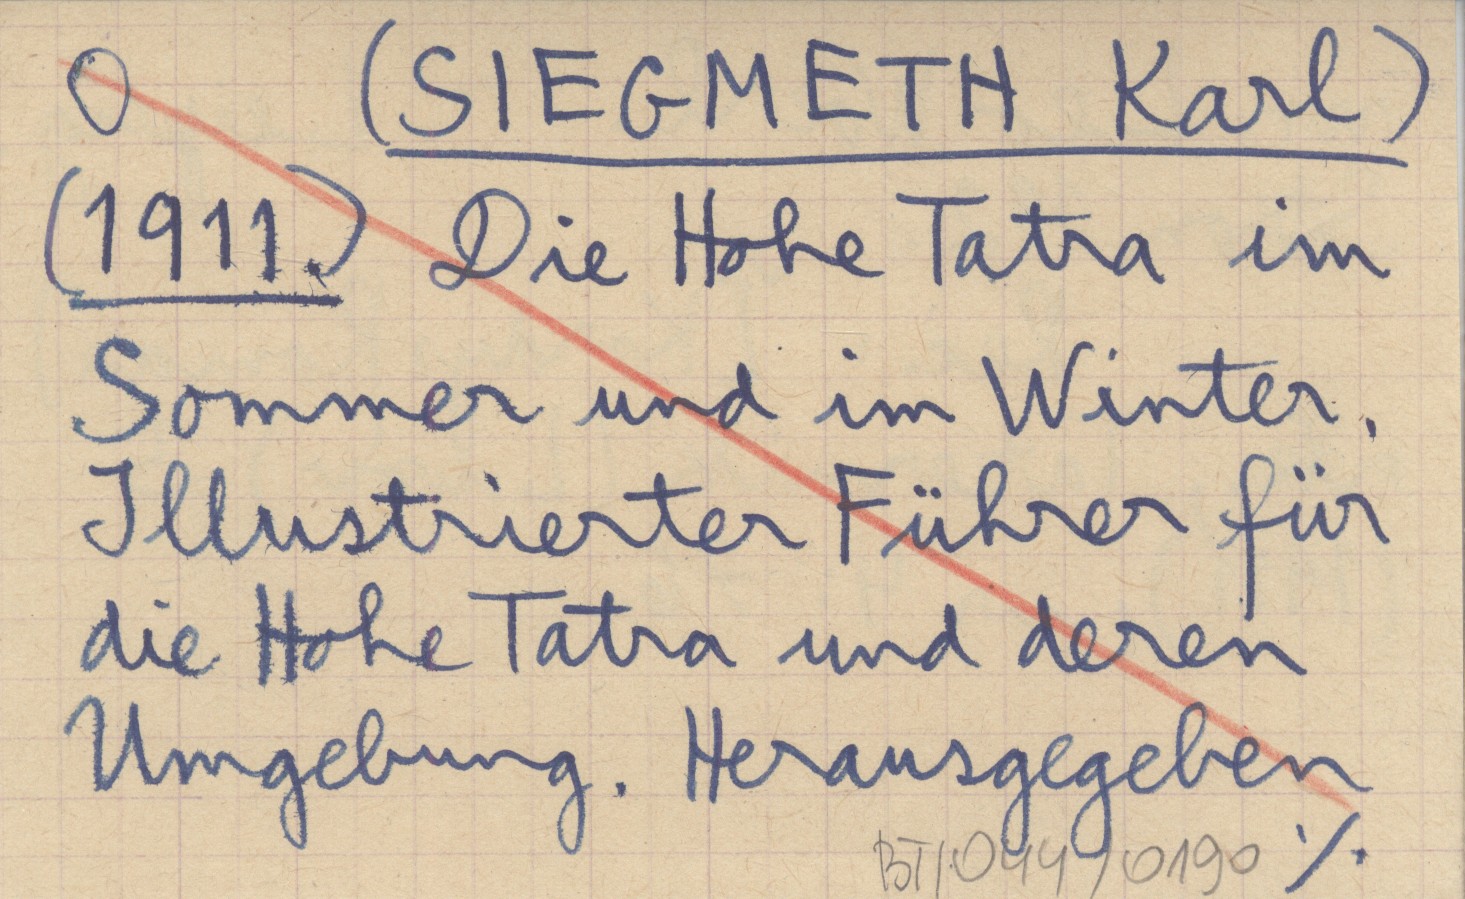 O (SIEGMETH Karl)
(1911.) Die Hohe Tatra im
Sommer und im Winter.
Illustrierter Führer für
die Hohe Tatra und deren
Umgebung. Herausgegeben
BT/044/0190 ./.